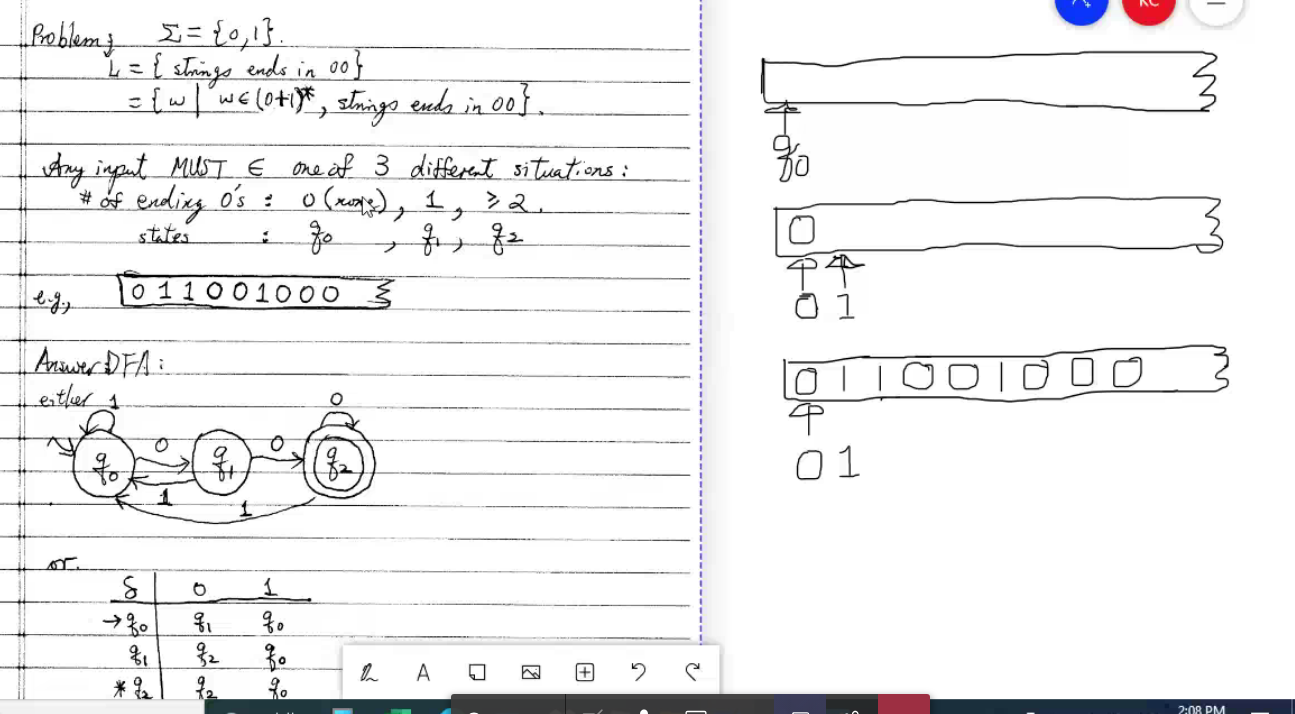 Problem; Σ = {0,1}.
L = { strings ends in 00}
= { w | w ∈ (0+1)*, strings ends in 00}.
Any input MUST ∈ one of 3 different situations:
# of ending 0's : 0 (none), 1, ≥ 2.
states : q0, q1, q2
e.g., 0 1 1 0 0 1 0 0 0
Answer DFA:
either
1 0
0 0
q0 q1 q2
1
1
or.
δ 0 1
→ q0 q1 q0
q1 q2 q0
* q2 q2 q0
KC
q0
0
0 1
0 1 1 0 0 1 0 0 0
0 1
A
2:08 PM